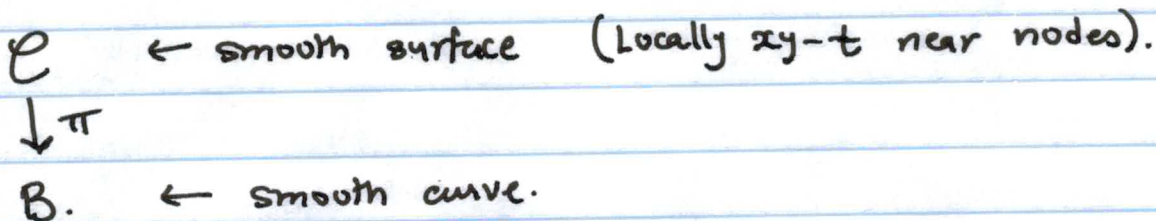 𝒞 ← smooth surface (Locally xy-t near nodes).
↓ π
B. ← smooth curve.